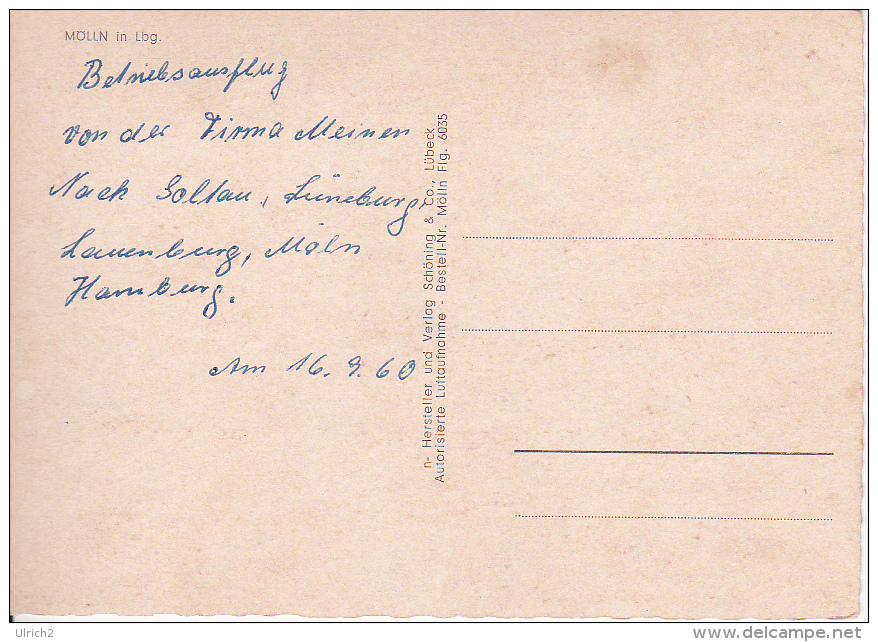 MÖLLN in Lbg.
Betriebsausflug
von der Firma Meinen
Nach Soltau, Lüneburg,
Lauenburg, Möln
Hamburg.
Am 16.9.60
n- Hersteller und Verlag Schöning & Co., Lübeck
Autorisierte Luftaufnahme - Bestell-Nr. Mölln Flg. 6035
Ulrich2
www.delcampe.net